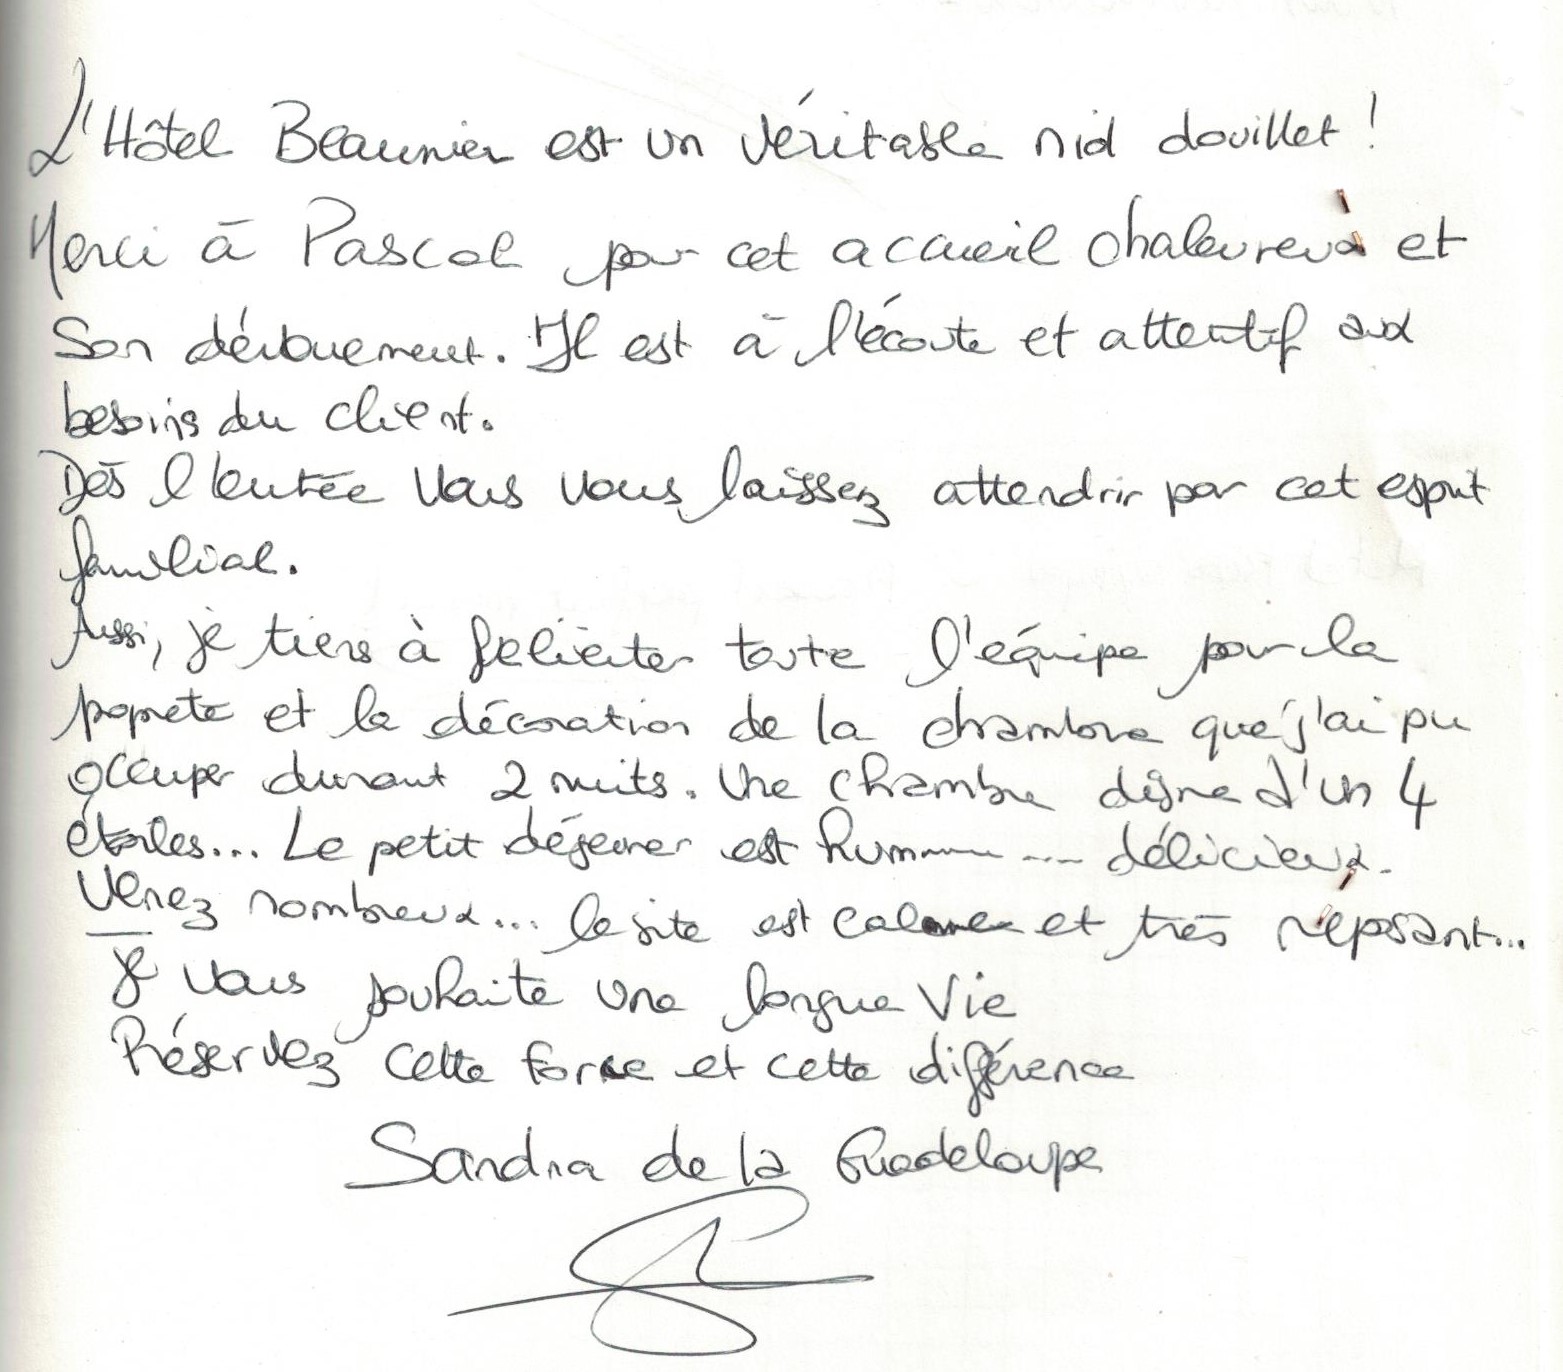 L'Hôtel Beaunier est un véritable nid douillet !
Merci à Pascal pour cet accueil chaleureux et
Son dévouement. Il est à l'écoute et attentif aux
besoins du client.
Dès l'entrée Vous vous laissez attendrir par cet esprit
familial.
Aussi, je tiens à féliciter toute l'équipe pour la
popreté et la décoration de la chambre que j'ai pu
occuper durant 2 nuits. Une chambre digne d'un 4
étoiles... Le petit déjeuner est hummmm .... délicieux.
Venez nombreux... le site est calme et très reposant...
Je vous souhaite une longue Vie
Préservez cette force et cette différence
Sandra de la Guadeloupe